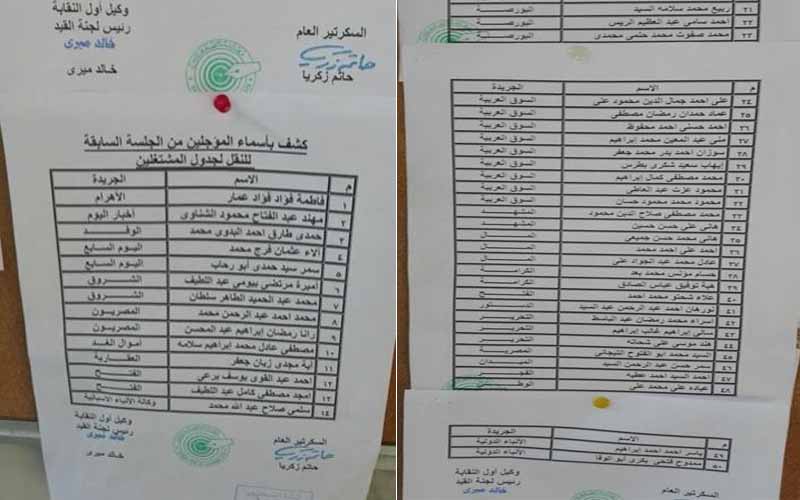 وكيل أول النقابة
رئيس لجنة القيد
خالد ميرى
خالد ميرى
السكرتير العام
حاتم زكريا
كشف بأسماء المؤجلين من الجلسة السابقة
للنقل لجدول المشتغلين
م الاسم الجريدة
١ فاطمة فؤاد فؤاد عمار الأهرام
٢ مهند عبد الفتاح محمود الشناوى أخبار اليوم
٣ حمدى طارق احمد البدوى محمد الوفد
٤ آلاء عثمان فرج محمد اليوم السابع
٥ سمر سيد حمدى أبو رحاب اليوم السابع
٦ أميرة مرتضي بيومي عبد اللطيف الشروق
٧ محمد عبد الحميد الطاهر سلطان الشروق
٨ محمد احمد عبد الرحمن محمد المصريون
٩ رانا رمضان إبراهيم عبد المحسن المصريون
١٠ مصطفى عادل محمد إبراهيم سلامه أموال الغد
١١ آية مجدى زيان جعفر العقارية
١٢ احمد عبد القوى يوسف برعي الفتح
١٣ امجد مصطفى كامل عبد اللطيف الفتح
١٤ سلمى صلاح عبد الله محمد وكالة الأنباء الاسبانية
السكرتير العام
حاتم زكريا
وكيل أول النقابة
رئيس لجنة القيد
خالد ميرى
خالد ميرى
٢١ ربيع محمد سلامه السيد البورصة
٢٢ احمد سامى عبد العظيم الريس البورصة
٢٣ محمد صفوت محمد حتمى محمدى البورصة
م الاسم الجريدة
٢٤ على احمد جمال الدين محمود على السوق العربية
٢٥ عماد حمدان رمضان مصطفى السوق العربية
٢٦ احمد حسنى احمد محفوظ السوق العربية
٢٧ منى عبد المعين محمد إبراهيم السوق العربية
٢٨ سوزان احمد بدر محمد جعفر السوق العربية
٢٩ إيهاب سعيد شكرى بطرس السوق العربية
٣٠ محمد مصطفى كمال إبراهيم السوق العربية
٣١ محمود عزت عبد العاطى السوق العربية
٣٢ محمود محمد محمود حسان السوق العربية
٣٣ محمد مصطفى صلاح الدين محمود المشهد
٣٤ هانى على حسن حسين المشهد
٣٥ هانى محمد حسن جميعى المال
٣٦ احمد على احمد محمد المال
٣٧ عادل محمد عبد الجواد على المال
٣٨ حسام مؤنس محمد الكرامة
٣٩ هبة توفيق عباس الصادق الكرامة
٤٠ علاء شحتو محمد احمد الفتح
٤١ نورهان احمد عبد الرحمن عبد السيد
٤٢ اسراء محمد رمضان عبد الباسط التحرير
٤٣ سالى إبراهيم غالب إبراهيم التحرير
٤٤ هند موسى على شحاته التحرير
٤٥ السيد محمد أبو الفتوح التيجانى المصرية
٤٦ سمر حسن عبد الرحمن السيد الميدان
٤٧ احمد السيد احمد عطيه الفجر
٤٨ عياده على محمد على
م الاسم الجريدة
٤٩ ياسر احمد احمد إبراهيم الأنباء الدولية
٥٠ ممدوح فتحى بكرى أبو الوفا الأنباء الدولية
وكيل أول النقابة
رئيس لجنة القيد
خالد ميرى
السكرتير العام